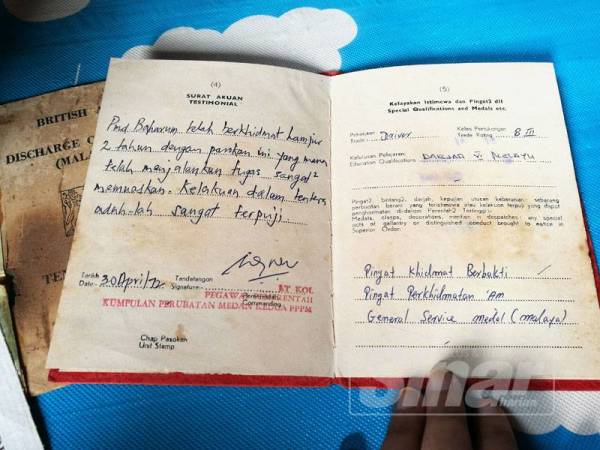 BRITISH
DISCHARGE C
(MALA
TE
(4)
SURAT AKUAN
TESTIMONIAL
Pmd Baharum telah berkhidmat lanjur
2 tahun dengan pasukan ini yang mana
telah menjalankan tugas sangat2
memuaskan. Kelakuan dalam tentera
adalah sangat terpuji
Tarikh
Date:- 30 April/72
Tandatangan
Signature:-
Commanding
LT KOL
PEGAWAI MEMERENTAH
KUMPULAN PERUBATAN MEDAN KEDUA PPPM
Chap Pasokan
Unit Stamp
(5)
Kelayakan Istimewa dan Pingat2 dll
Special Qualifications and Medals etc.
Trade: Driver
Kelas Pertukangan
Trade Rating B III
Kelulusan Pelajaran
Education Qualifications DARJAH V. MELAYU
Pingat2, bintang2, darjah, kepujian utusan keberanian, sebarang
perbuatan berani yang teristimewa atau kelakuan terpuji yang dapat
penghormatan di-dalam Perentah2 Tertinggi:-
Medals, clasps, decorations, mention in despatches, any special
acts of gallantry or distinguished conduct brought to notice in
Superior Order:
Pingat Khidmat Berbakti
Pingat Perkhidmatan 'Am
General Service medal (malaya)
Sinar
Harian